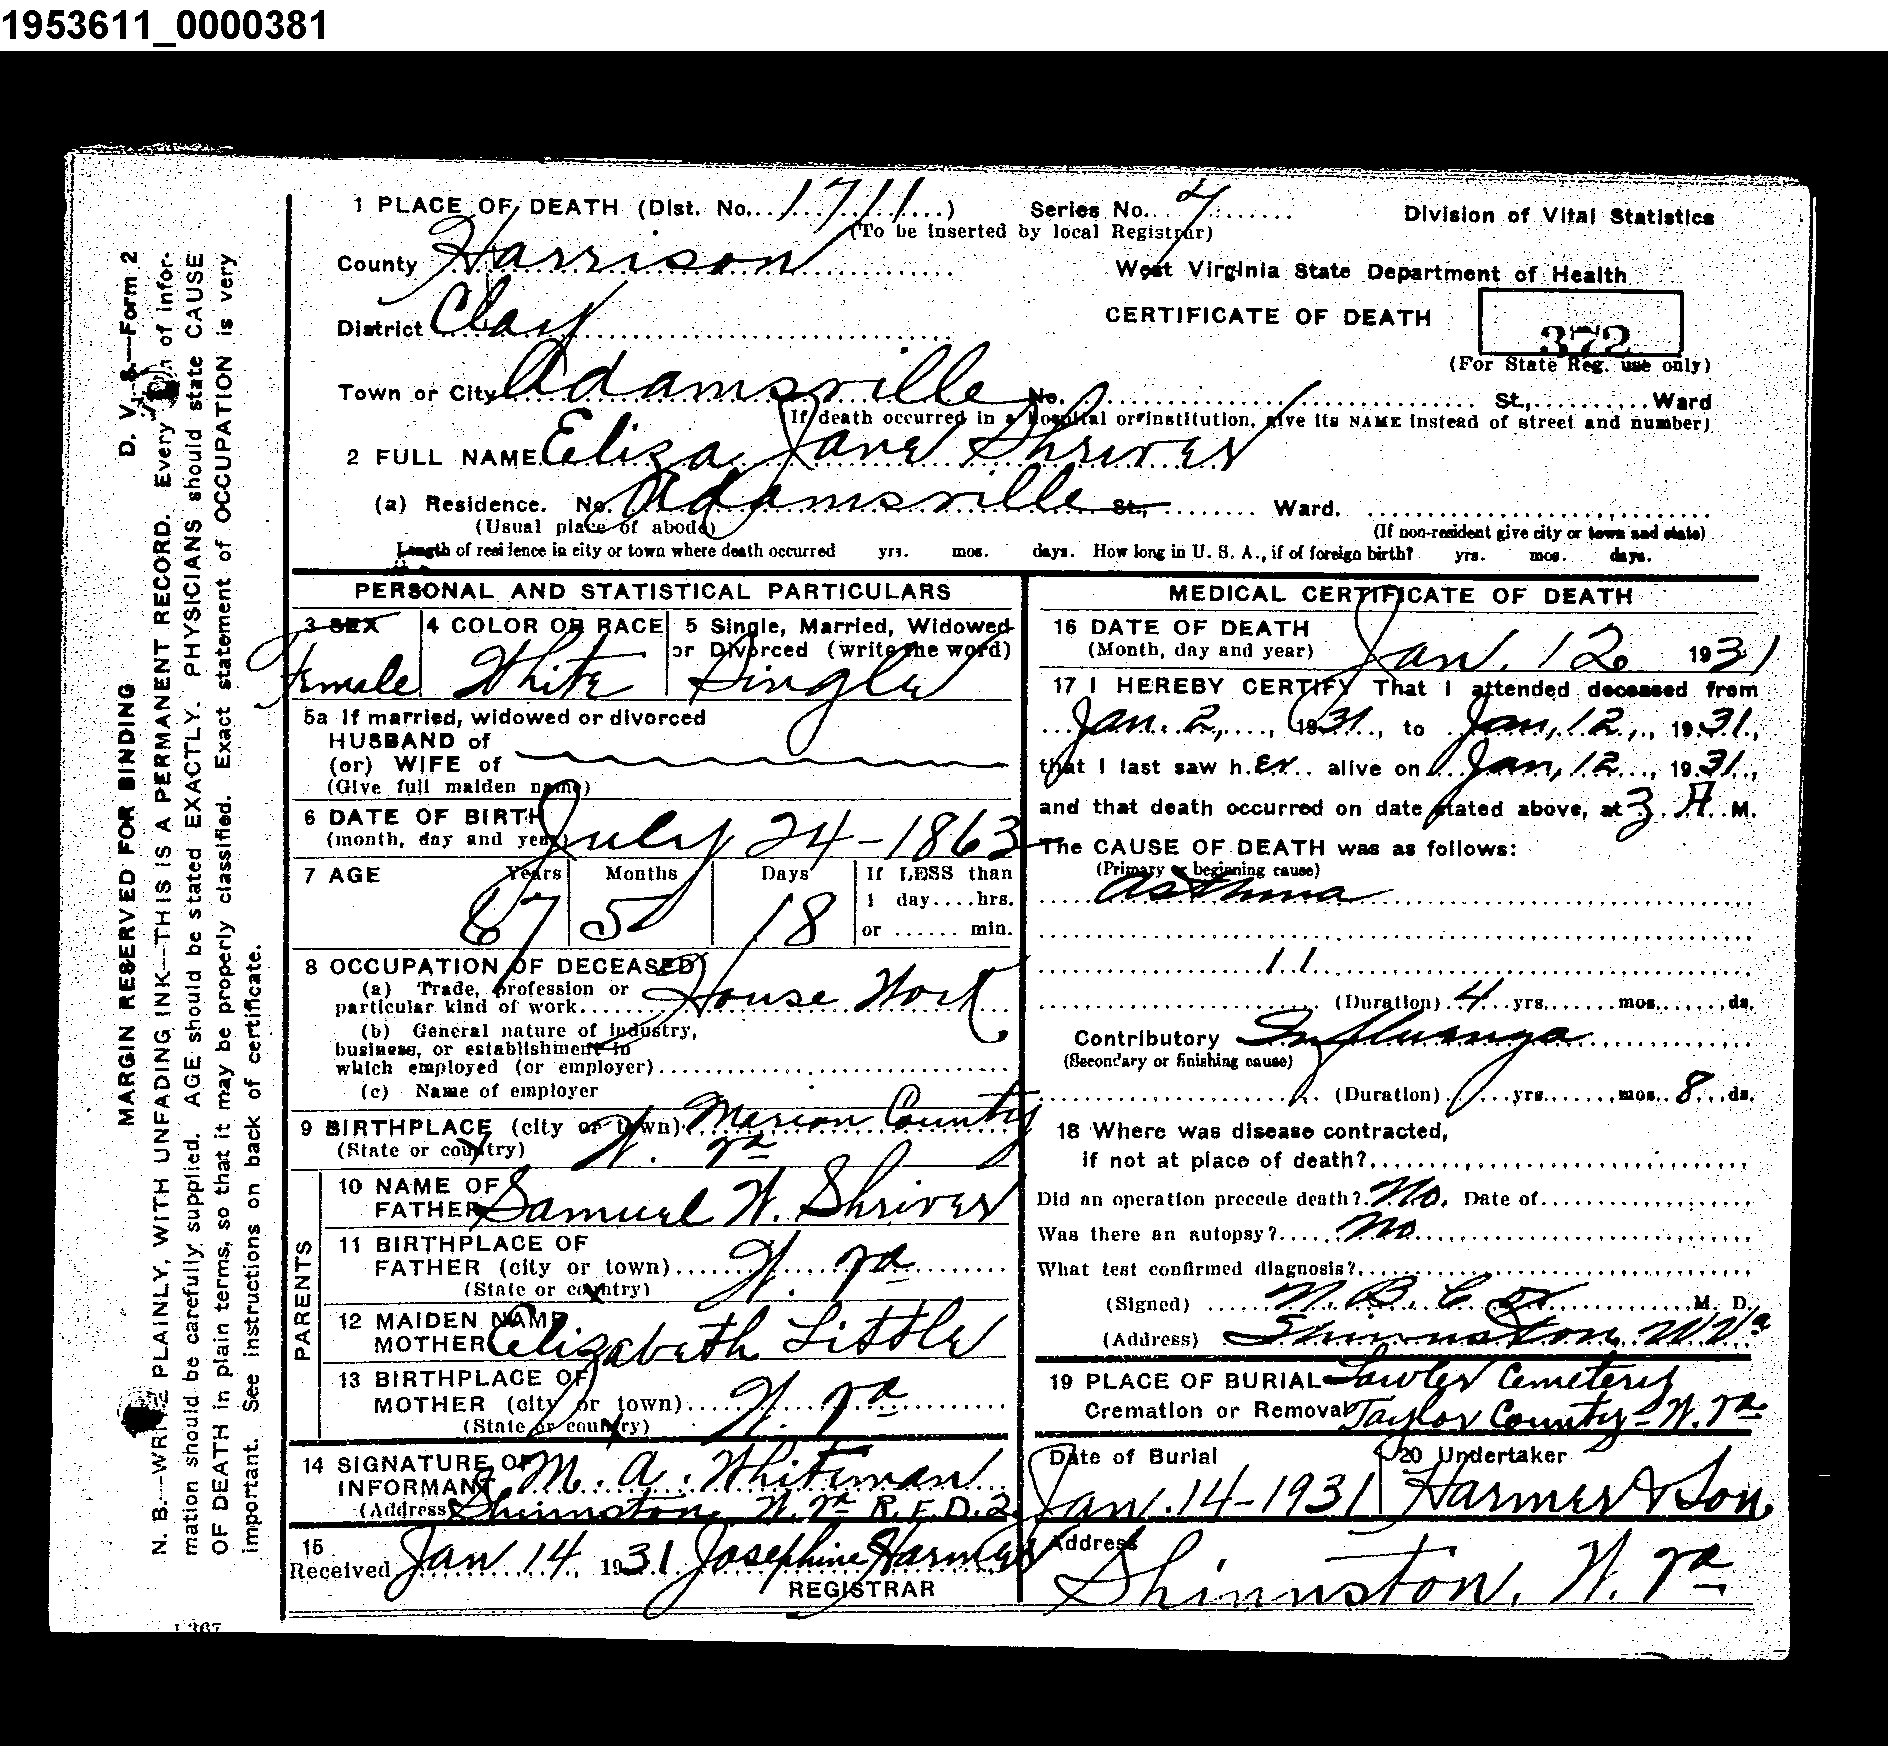 1953611_0000381
1 PLACE OF DEATH (Dist. No. 1711) Series No. 7 Division of Vital Statistics
(To be inserted by local Registrar)
County Harrison West Virginia State Department of Health
District Clay CERTIFICATE OF DEATH 372
(For State Reg. use only)
Town or City Adamsville No. St., Ward
(If death occurred in a hospital or institution, give its NAME instead of street and number)
2 FULL NAME Eliza Jane Shriver
(a) Residence. No. Adamsville St., Ward.
(Usual place of abode) (If non-resident give city or town and state)
Length of residence in city or town where death occurred yrs. mos. days. How long in U. S. A., if of foreign birth? yrs. mos. days.
PERSONAL AND STATISTICAL PARTICULARS
3 SEX 4 COLOR OR RACE 5 Single, Married, Widowed
or Divorced (write the word)
Female White Single
5a If married, widowed or divorced
HUSBAND of
(or) WIFE of
(Give full maiden name)
6 DATE OF BIRTH July 24-1863
(month, day and year)
7 AGE Years Months Days If LESS than
1 day....hrs.
67 5 18 or ...... min.
8 OCCUPATION OF DECEASED
(a) Trade, profession or
particular kind of work House Work
(b) General nature of industry,
business, or establishment in
which employed (or employer)
(c) Name of employer
9 BIRTHPLACE (city or town) Marion County
(State or country) W. Va
PARENTS
10 NAME OF
FATHER Samuel W. Shriver
11 BIRTHPLACE OF
FATHER (city or town) W. Va
(State or country)
12 MAIDEN NAME
MOTHER Elizabeth Little
13 BIRTHPLACE OF
MOTHER (city or town) W. Va
(State or country)
14 SIGNATURE OF
INFORMANT M. A. Whiteman
(Address Shinnston, W. Va R.F.D.2
15
Received Jan 14 1931 Josephine Harmer
REGISTRAR
MEDICAL CERTIFICATE OF DEATH
16 DATE OF DEATH
(Month, day and year) Jan. 12 1931
17 I HEREBY CERTIFY That I attended deceased from
Jan. 2, 1931, to Jan, 12, 1931,
that I last saw her alive on Jan, 12, 1931,
and that death occurred on date stated above, at 3 A. M.
The CAUSE OF DEATH was as follows:
(Primary or beginning cause)
Asthma
11
(Duration) 4 yrs. mos. ds.
Contributory Influenza
(Secondary or finishing cause)
(Duration) yrs. mos. 8 ds.
18 Where was disease contracted,
if not at place of death?
Did an operation precede death? No. Date of
Was there an autopsy? No
What test confirmed diagnosis?
(Signed) M. D.
(Address) Shinnston W Va
19 PLACE OF BURIAL Lawler Cemetery
Cremation or Removal Taylor County-W. Va
Date of Burial 20 Undertaker
Jan. 14-1931 Harmer & Son.
Address
Shinnston, W. Va
MARGIN RESERVED FOR BINDING D. V. S.—Form 2
N. B.—WRITE PLAINLY, WITH UNFADING INK—THIS IS A PERMANENT RECORD. Every item of infor-
mation should be carefully supplied. AGE should be stated EXACTLY. PHYSICIANS should state CAUSE
OF DEATH in plain terms, so that it may be properly classified. Exact statement of OCCUPATION is very
important. See instructions on back of certificate.